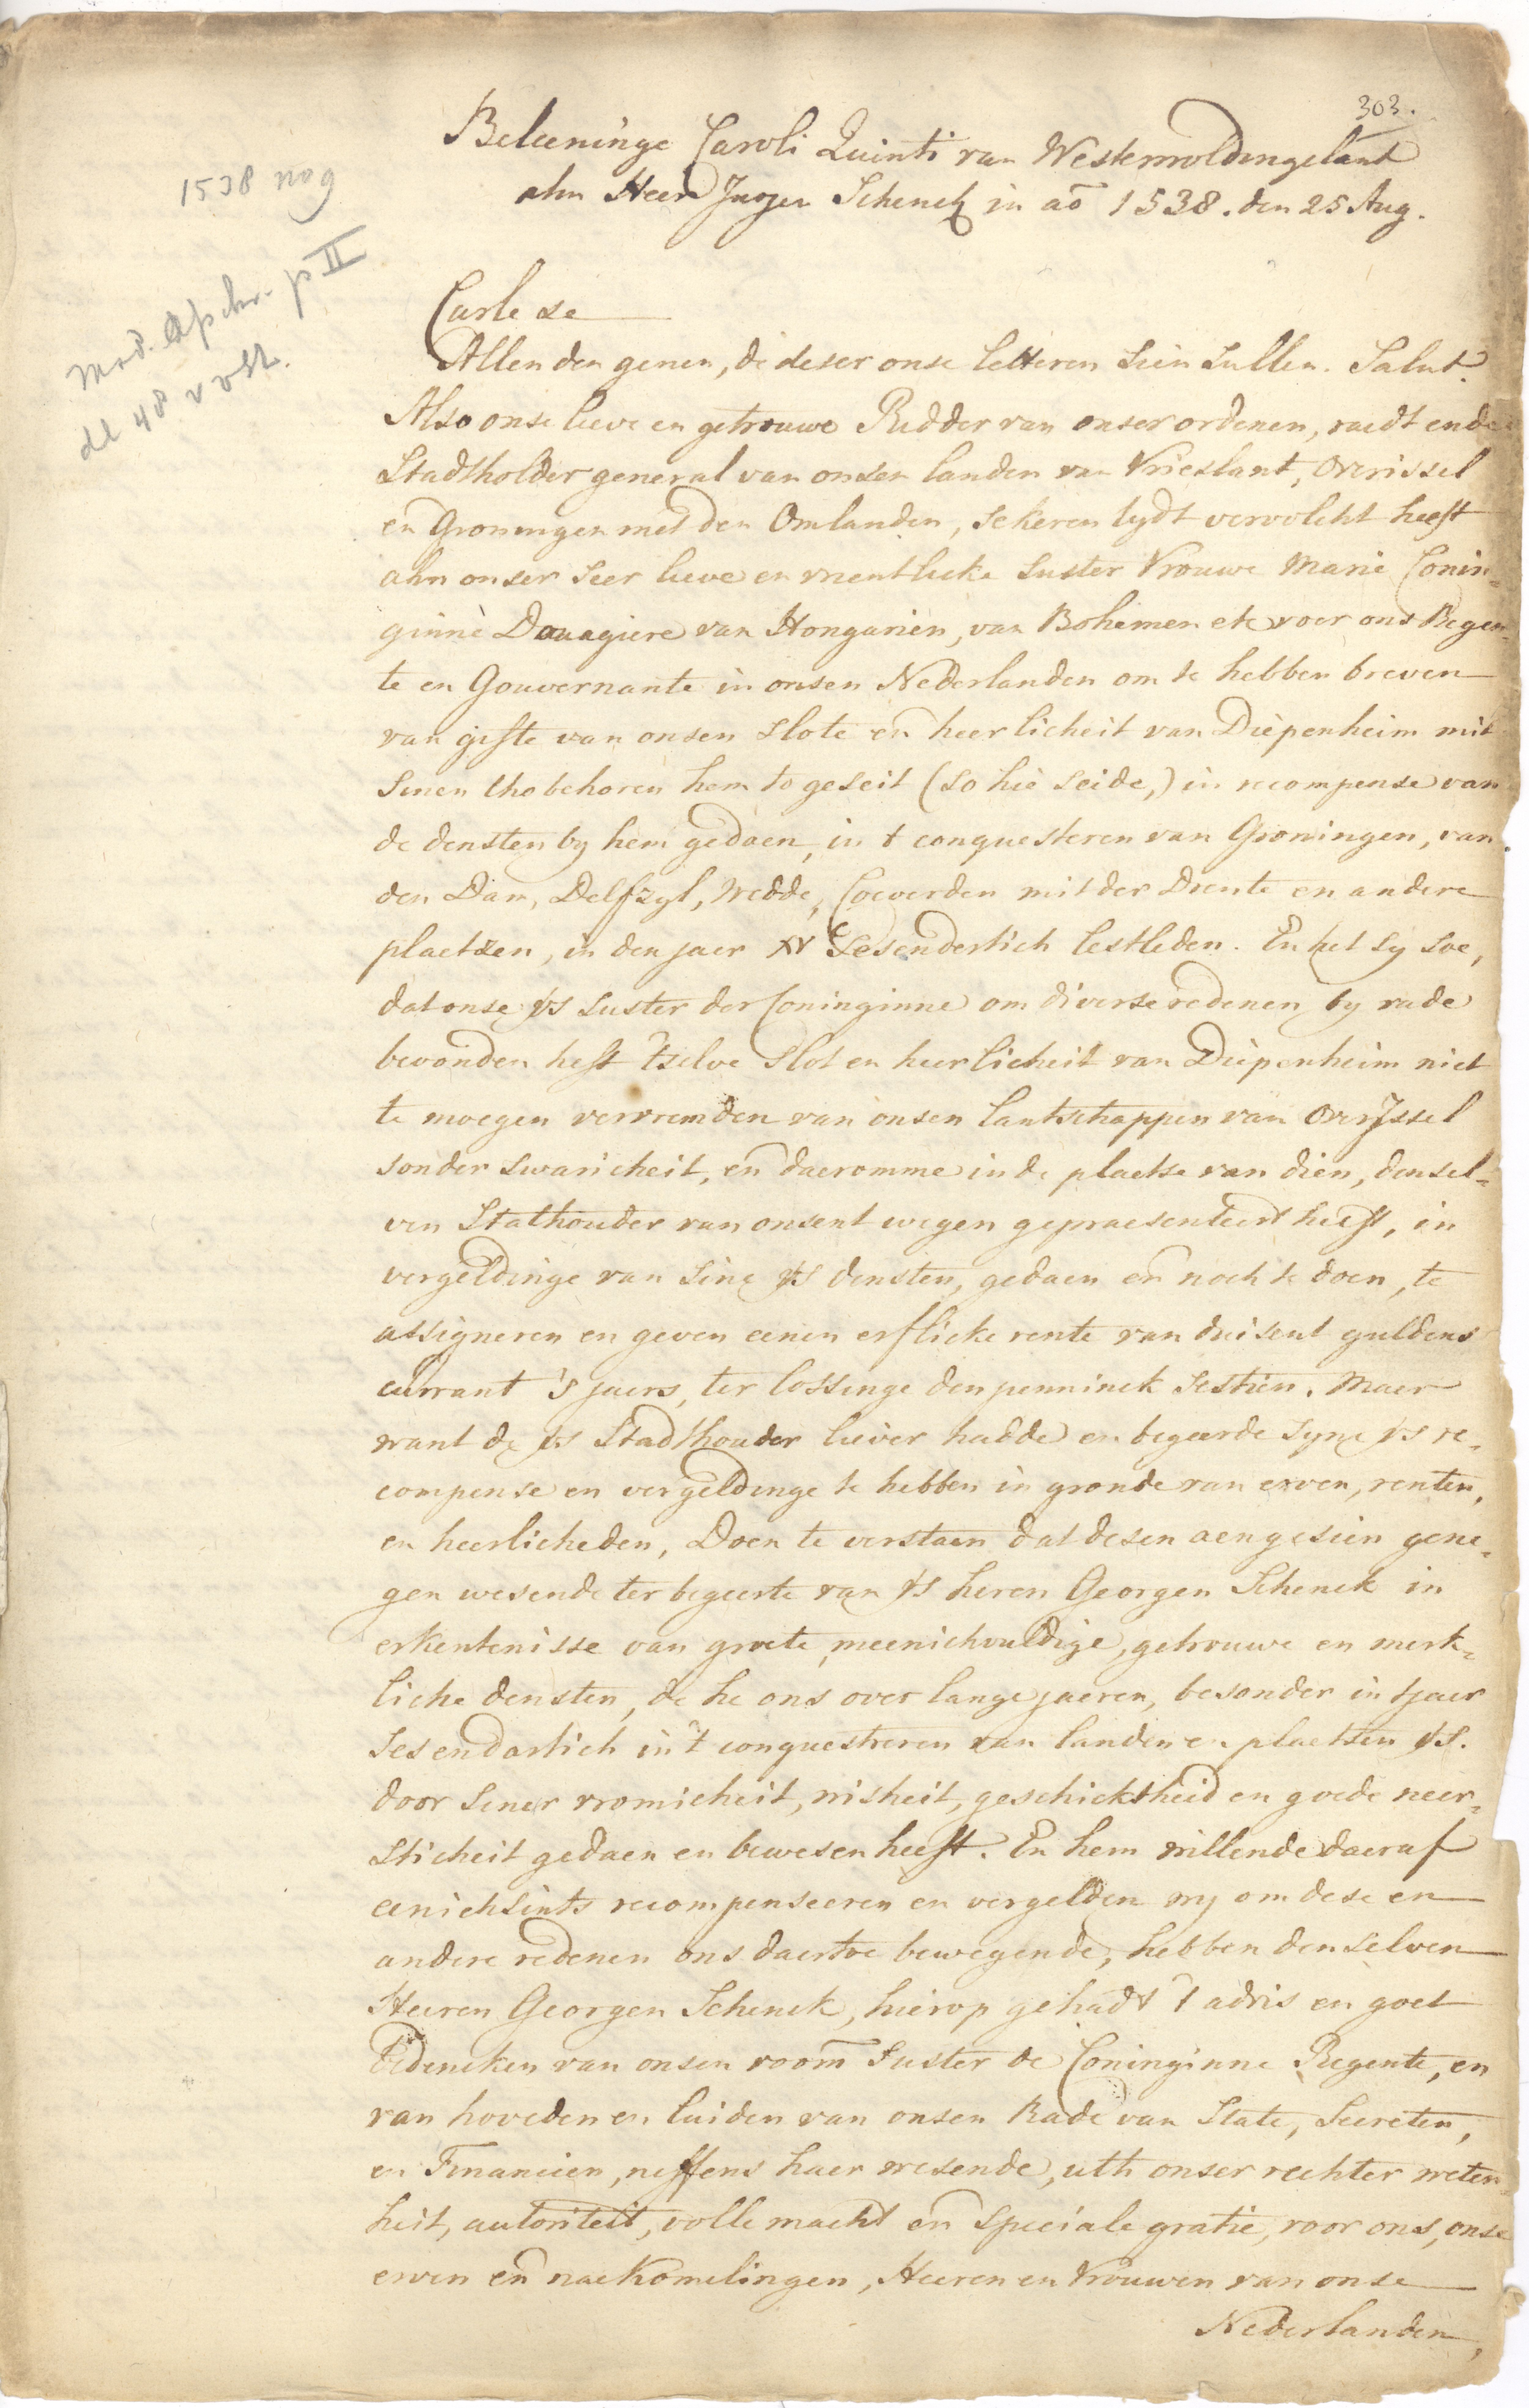 303.
Beleeninge Caroli Quinti van Westerwoldingelant
ahn Heer Jurjen Schenck in aō 1538. den 25 Aug.
1538 nog
dl 48
Carle de
Allen den genen, di deser onse letteren sien sullen. Salut.
Also onse lieve en getrouwe Ridder van onser ordenen, raedt ende
Stadtholder general van onsen landen van Vrieslant, Overissel
en Groningen met den Omlanden, sekeren tydt vervolcht heeft
ahn onser seer lieve en vrentlicke suster Vrouwe Marie Conin-
ginnè Douagiere van Hongarien, van Bohemen etc voer ons Regen-
te en Gouvernante in onsen Nederlanden om te hebben breven
van gifte van onsen slote en heerlicheit van Diepenheim mit
sinen thobehoren hem to geseit (so hie seide,) in recompense van
de densten by hem gedaen, in t conquesteren van Groningen, van
den Dam, Delfzyl, Wedde, Coeverden mit der Drente en andere
plaetzen, in den jaer XV sesendertich lestleden. En het sy soe,
dat onse vs suster der Coninginne om diverse redenen by rade
bevonden heft 'tselve slot en heerlicheit van Diepenheim niet
te moegen vervremden van onsen lantschappen van OverJssel
sonder swaricheit, en daeromme in de plaetse van dien, densel-
ven Stathouder van onsent wegen gepraesenteert heeft, in
vergeldinge van sine vs densten, gedaen en noch te doen, te
assigneren en geven eenen erflicke rente van duisent guldens
currant 's jaers, ter lossinge den penninck sestien. Maer
want de vs Stadthouder liever hadde en begeerde syne vs re-
compense en vergeldinge te hebben in gronde van erven, renten,
en heerlicheden, Doen te verstaen dat desen aengesien gene-
gen wesende ter begeerte van vs heren Georgen Schenck in
erkentenisse van groete, meenichvuldige, getrouwe en merk-
liche densten, de he ons over lange jaeren, besonder in tjaer
sesendartich in 't conquestreren van landen en plaetsen vs.
door siner vromicheit, wisheit, geschicktheid en goede neer-
sticheit gedaen en bewesen heeft. En hem willende daeraf
eenichsints recompenseeren en vergelden wy om dese en
andere redenen ons daertoe bewegende, hebben denselven
Heeren Georgen Schenck, hierop gehadt 't advis en goet
bedencken van onsen voorn̄ suster de Coninginne Regente, en
van hoveden en luiden van onsen Rade van State, Secreten,
en Financien, neffens haer wesende, uth onser rechter weten-
heit, autoriteit, volle macht en speciale gratie, voor ons, onse
erven en naekomelingen, Heeren en Vrouwen van onse
Nederlanden,